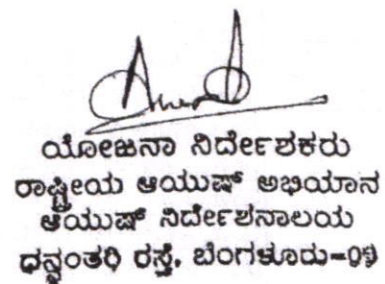 ಯೋಜನಾ ನಿರ್ದೇಶಕರು
ರಾಷ್ಟ್ರೀಯ ಆಯುಷ್ ಅಭಿಯಾನ
ಆಯುಷ್ ನಿರ್ದೇಶನಾಲಯ
ಧನ್ವಂತರಿ ರಸ್ತೆ, ಬೆಂಗಳೂರು-09